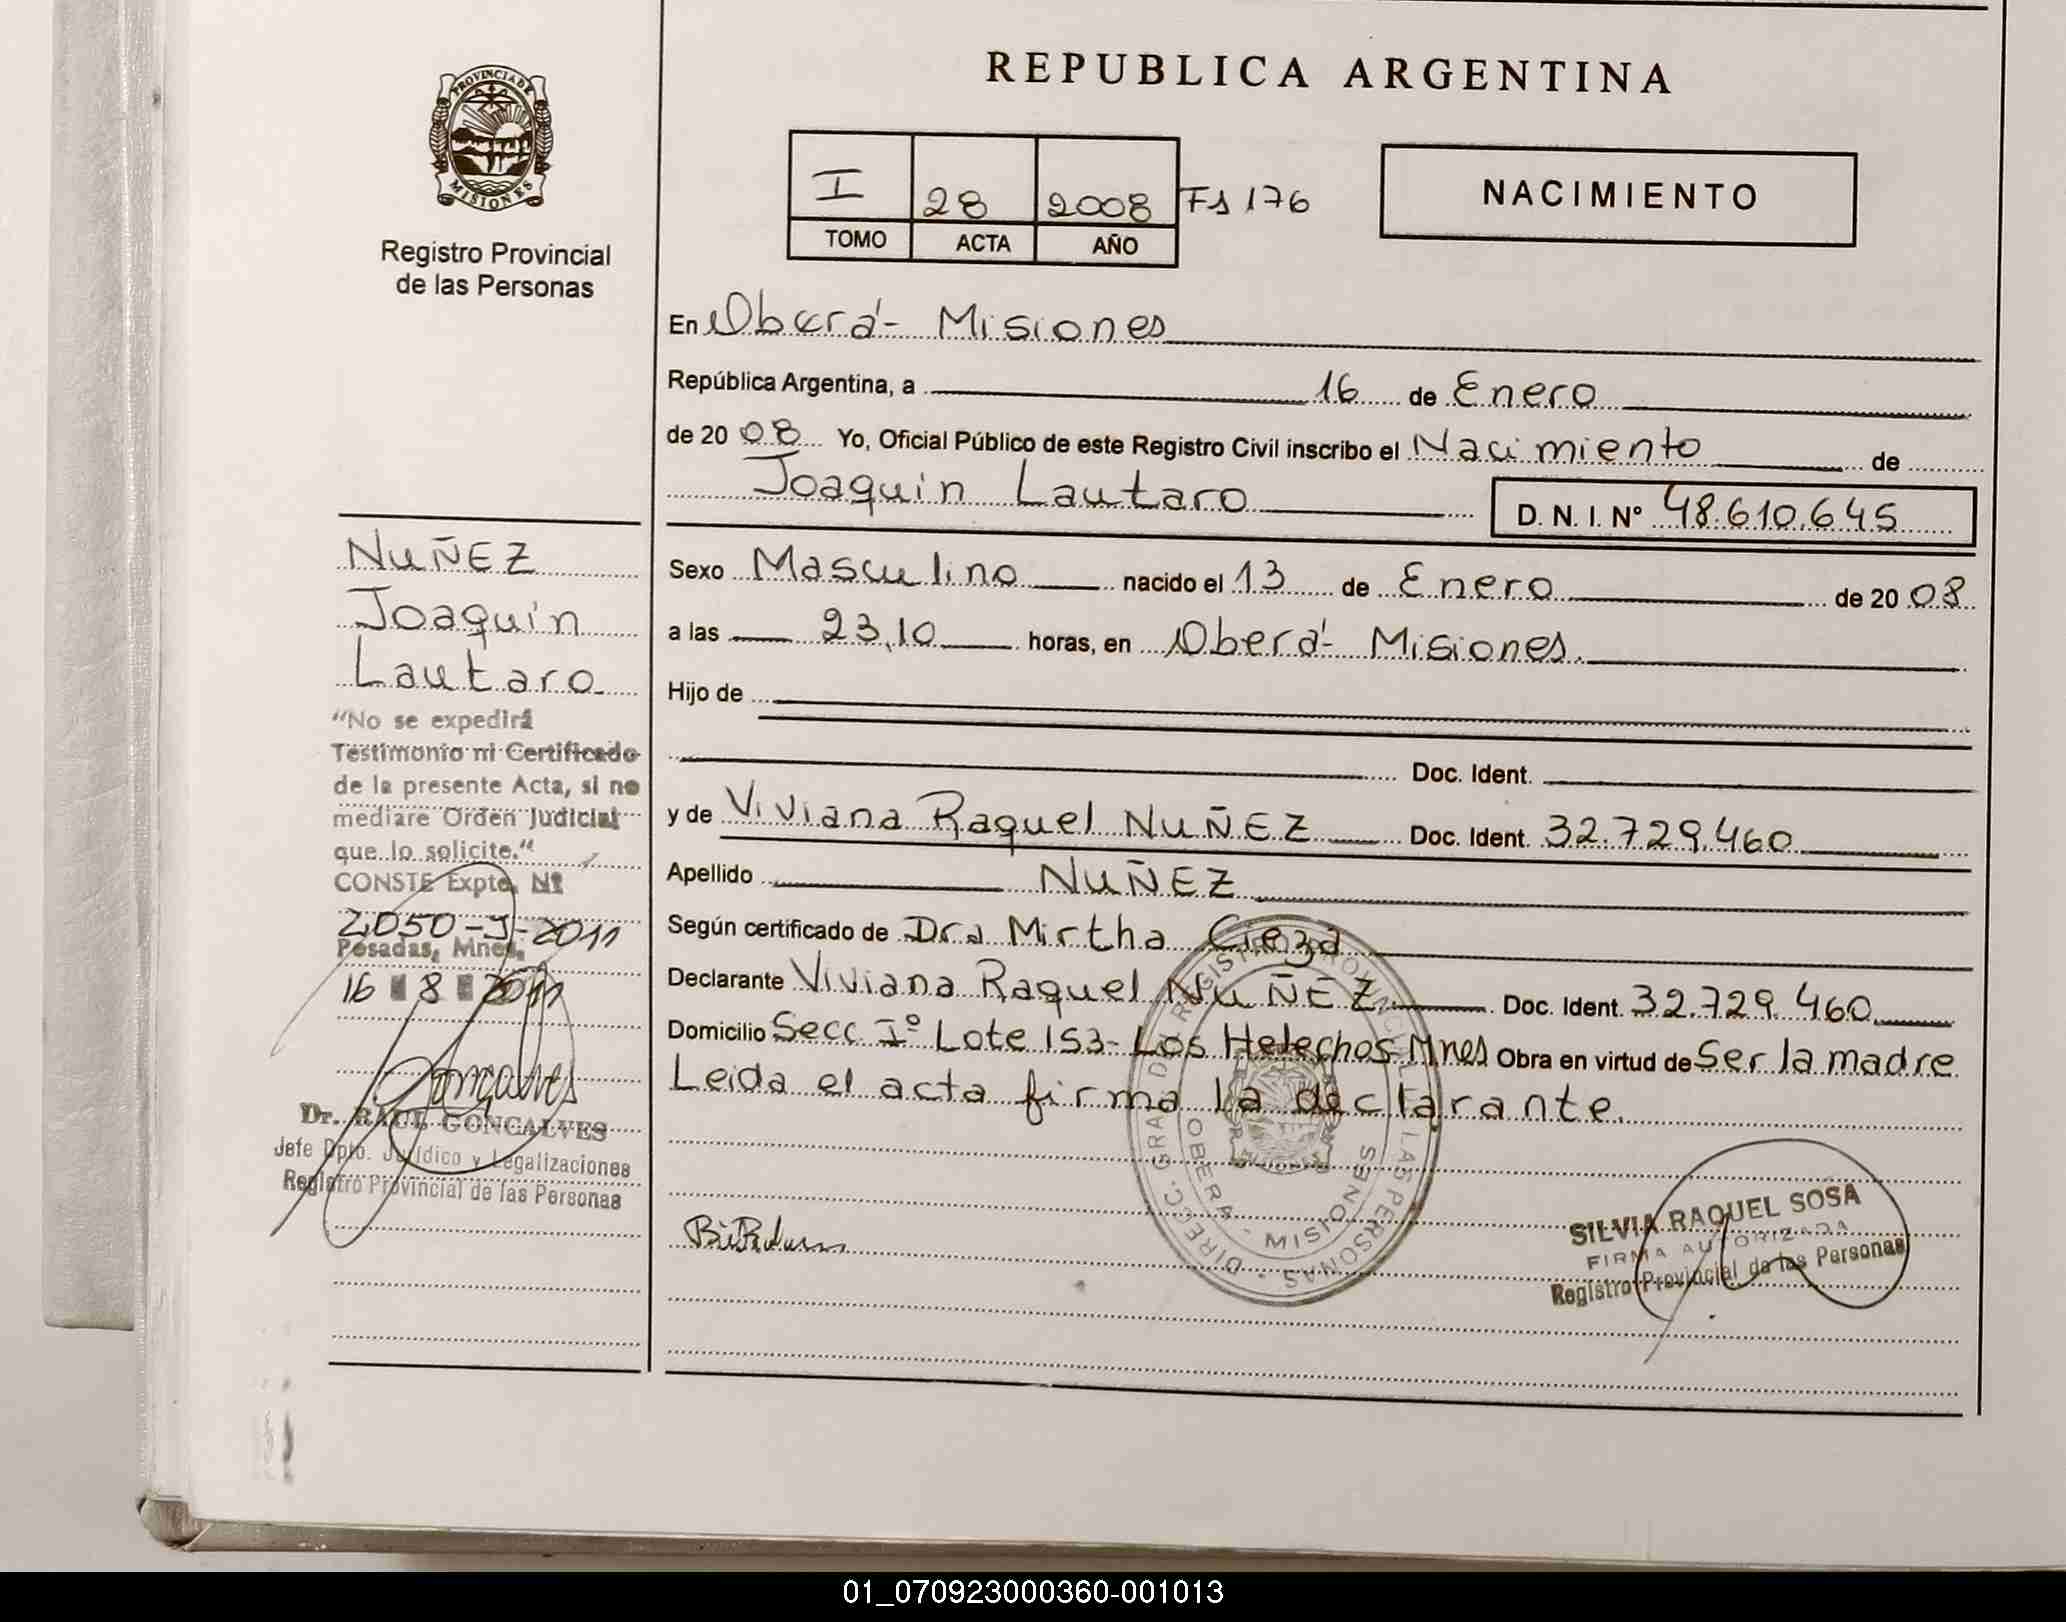 PROVINCIA DE
MISIONES
Registro Provincial
de las Personas
REPUBLICA ARGENTINA
I 28 2008 Fs 176
TOMO ACTA AÑO
NACIMIENTO
En Oberá - Misiones
República Argentina, a 16 de Enero
de 20 08 Yo, Oficial Público de este Registro Civil inscribo el Nacimiento de
Joaquin Lautaro D. N. I. Nº 48.610.645
Sexo Masculino nacido el 13 de Enero de 20 08
a las 23,10 horas, en Oberá - Misiones.
Hijo de
Doc. Ident.
y de Viviana Raquel NUÑEZ Doc. Ident. 32.729.460
Apellido NUÑEZ
Según certificado de Dra Mirtha Cieza
Declarante Viviana Raquel NUÑEZ Doc. Ident. 32.729.460
Domicilio Secc Iº Lote 153 - Los Helechos - Mnes Obra en virtud de Ser la madre
Leida el acta firma la declarante.
NUÑEZ
Joaquin
Lautaro
"No se expedirá
Testimonio ni Certificado
de la presente Acta, si no
mediare Orden Judicial
que lo solicite."
CONSTE Expte. Nº
2050-J-2011
Posadas, Mnes.
16 8 2011
Goncalves
Dr. RAUL GONCALVES
Jefe Dpto. Jurídico y Legalizaciones
Registro Provincial de las Personas
DIRECC. GRAL. DEL REGISTRO PROVINCIAL DE LAS PERSONAS
OBERA - MISIONES
SILVIA RAQUEL SOSA
FIRMA AUTORIZADA
Registro Provincial de las Personas
01_070923000360-001013